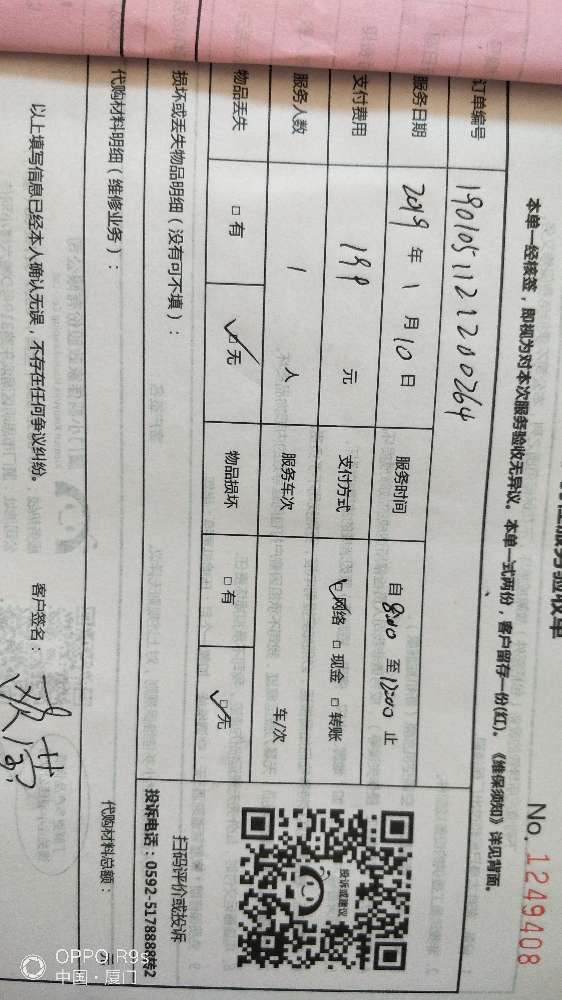 服务验收单
No. 1249408
本单一经核签，即视为对本次服务验收无异议。本单一式两份，客户留存一份(红)。《维保须知》详见背面。
订单编号 190105112 1200264
服务日期 2019 年 1 月 10 日 服务时间 自 8:00 至 12:00 止
支付费用 199 元 支付方式 □网络 □现金 □转账
服务人数 1 人 服务车次 车/次
物品丢失 □有 □无 物品损坏 □有 □无
投诉或建议
扫码评价或投诉
投诉电话：0592-5178888转2
损坏或丢失物品明细（没有可不填）：
代购材料明细（维修业务）： 代购材料总额： 元
以上填写信息已经本人确认无误，不存在任何争议纠纷。 客户签名：
OPPO R9s
中国·厦门